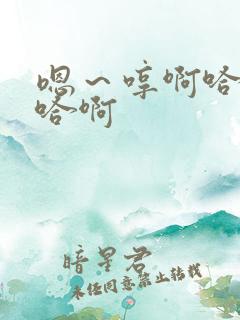 嗯～哼啊哈
哈啊
暗星君
未经同意禁止转载